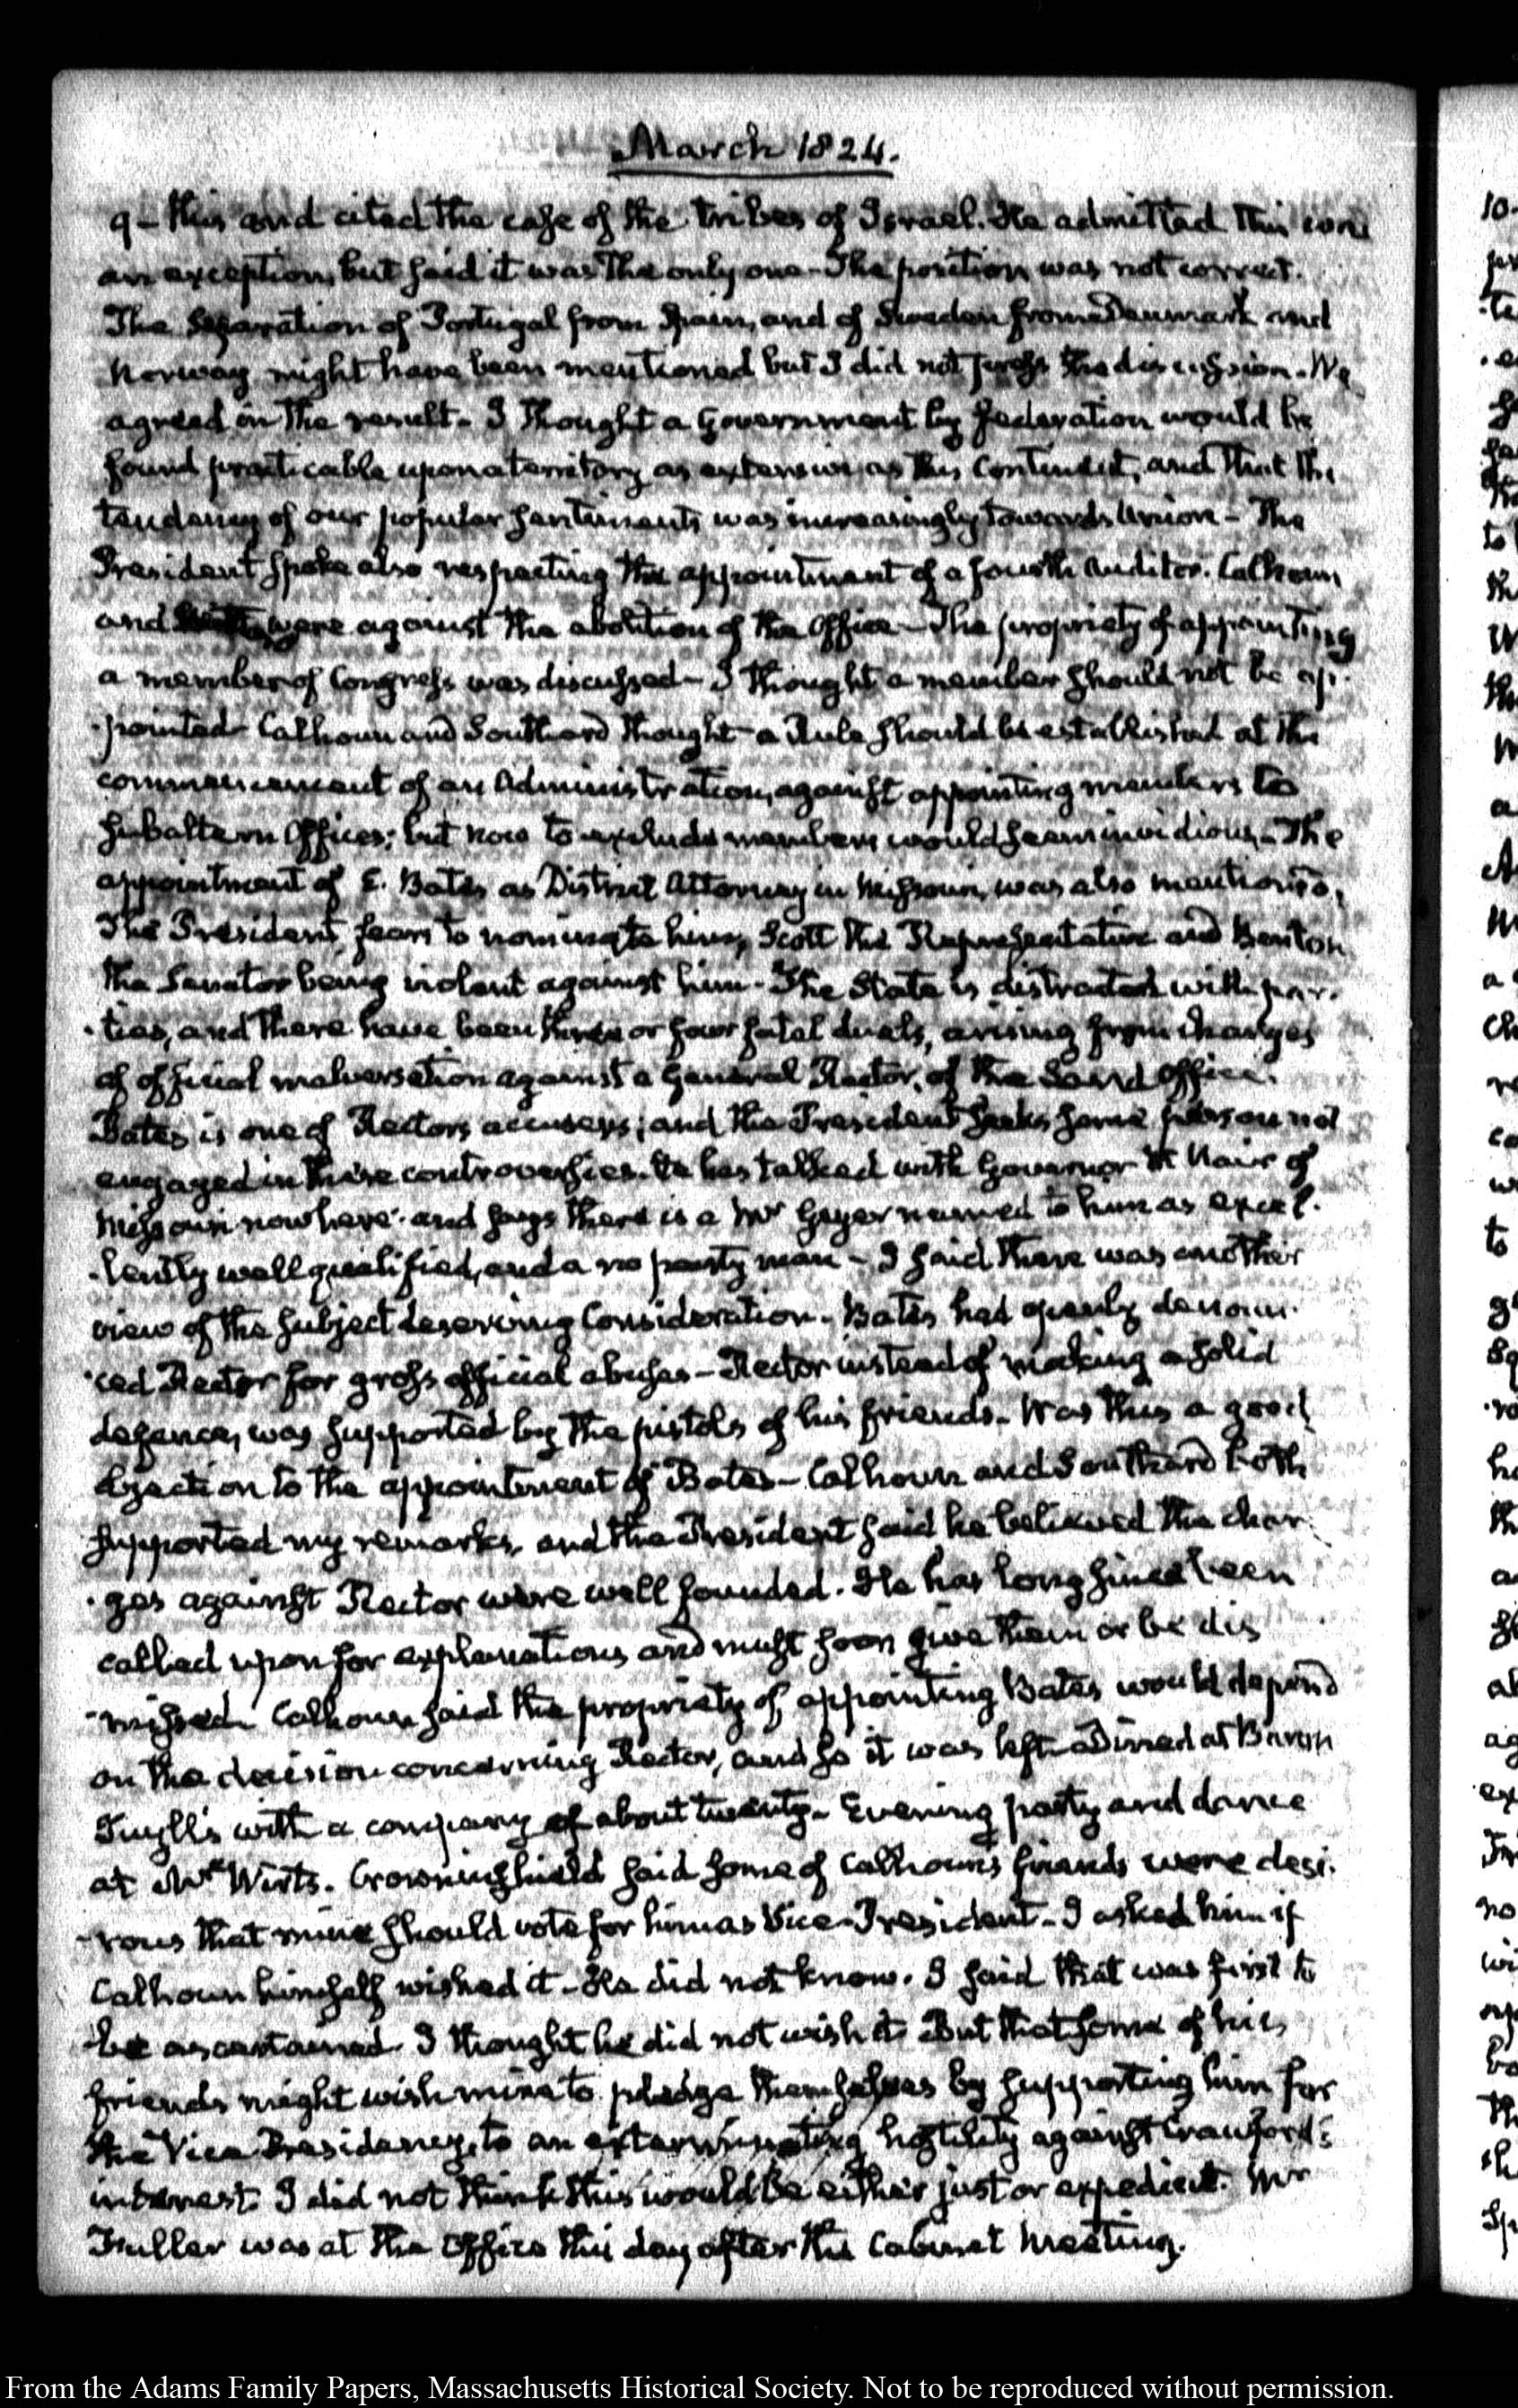 March 1824.
9 - this and cited the case of the tribes of Israel. He admitted this
an exception, but said it was the only one - The position was not correct.
The Separation of Portugal from Spain, and of Sweden from Denmark and
Norway might have been mentioned but I did not press the discussion. We
agreed in the result. I thought a Government by federation would be
found practicable upon a territory as extensive as this Continent, and that the
tendency of our popular sentiments was increasingly towards Union - The
President spoke also respecting the appointment of a fourth Auditor. Calhoun
and were against the abolition of the Office - The propriety of appointing
a member of Congress was discussed - I thought a member should not be ap-
-pointed - Calhoun and Southard thought a Rule should be established at the
commencement of an Administration, against appointing members to
subaltern Offices; but now to exclude members would seem invidious - The
appointment of E. Bates as District Attorney in Missouri, was also mentioned,
The President fears to nominate him, Scott the Representative and Benton
the Senator being violent against him. The State is distracted with par-
-ties, and there have been three or four fatal duels, arising from charges
of official malversation against a General Rector, of the Land Office.
Bates is one of Rectors accusers; and the President seeks some person not
engaged in these controversies. He has talked with Governor Mc Nair of
Missouri now here. and says there is a Mr Geyer named to him as excel-
-lently well qualified, and a no party man - I said there was another
view of the subject deserving Consideration. Bates had openly denoun-
-ced Rector for gross official abuses - Rector instead of making a solid
defence, was supported by the pistols of his friends. Was this a good
objection to the appointment of Bates - Calhoun and Southard both
supported my remarks, and the President said he believed the char-
-ges against Rector were well founded. He has long since been
called upon for explanations and must soon give them or be dis
-missed. Calhoun said the propriety of appointing Bates would depend
on the decision concerning Rector, and so it was left - Dined at Baron
Tuyll's with a company of about twenty. Evening party and dance
at Mrs Wirts. Crowninshield said some of Calhoun's friends were desi-
-rous that mine should vote for him as Vice-President - I asked him if
Calhoun himself wished it - He did not know. I said that was first to
be ascertained. I thought he did not wish it. But that some of his
friends might wish mine to pledge themselves by supporting him for
the Vice Presidency, to an exterminating hostility against Crawford's
interest. I did not think this would be either just or expedient. Mr
Fuller was at the Office this day after the Cabinet Meeting.
From the Adams Family Papers, Massachusetts Historical Society. Not to be reproduced without permission.